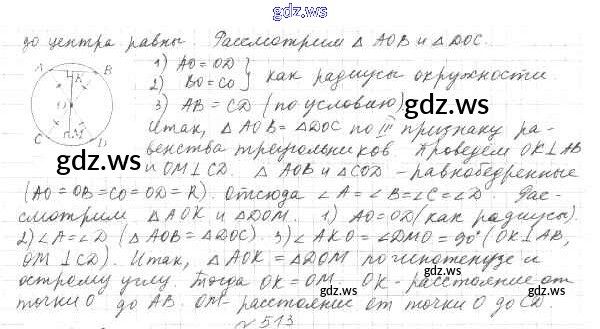 gdz.ws
до центра равны. Рассмотрим △ AOB и △ DOC.
A K B
O
C M D
1) AO = OD
2) BO = CO } как радиусы окружности
3) AB = CD (по условию)
gdz.ws
Итак, △ AOB = △ DOC по III признаку ра-
gdz.ws
венства треугольников. Проведём OK ⊥ AB
и OM ⊥ CD. △ AOB и △ COD - равнобедренные
(AO = OB = CO = OD = R). Отсюда ∠A = ∠B = ∠C = ∠D. Рас-
gdz.ws
смотрим △ AOK и △ DOM. 1) AO = OD (как радиусы).
2) ∠A = ∠D (△ AOB = △ DOC). 3) ∠ AKO = ∠DMO = 90° (OK ⊥ AB,
gdz.ws
OM ⊥ CD). Итак, △ AOK = △ DOM по гипотенузе и
острому углу. Тогда OK = OM. OK - расстояние от
gdz.ws
точки O до AB. OM - расстояние от точки O до CD.
gdz.ws
№ 513